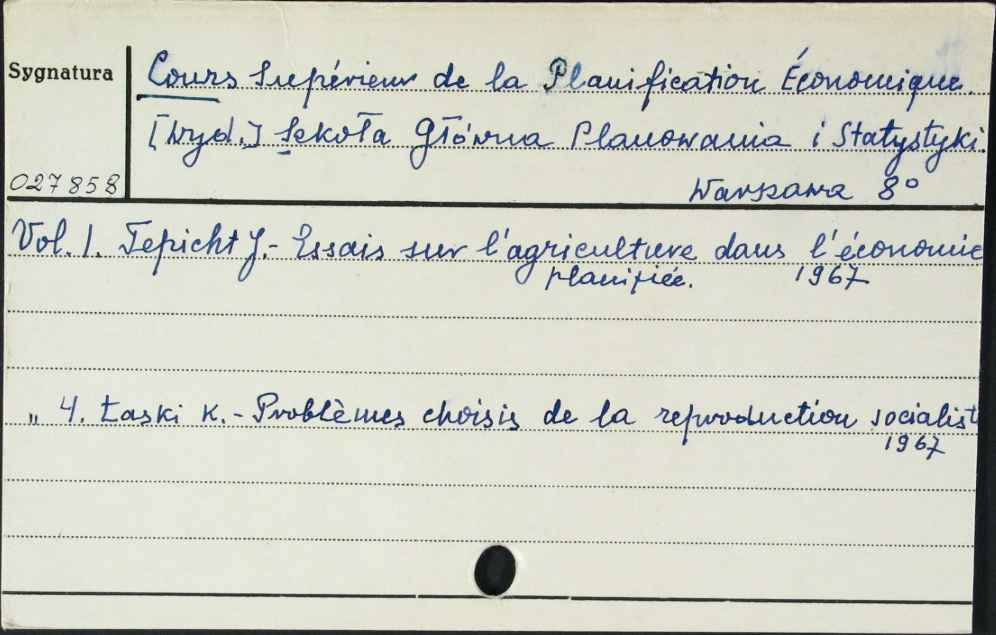 Sygnatura
Cours Supérieur de la Planification Économique.
[Wyd.] Szkoła Główna Planowania i Statystyki.
027858
Warszawa 8°
Vol. 1. Tepicht J. - Essais sur l'agriculture dans l'économie
planifiée. 1967
" 4. Łaski K. - Problèmes choisis de la reproduction socialist
1967